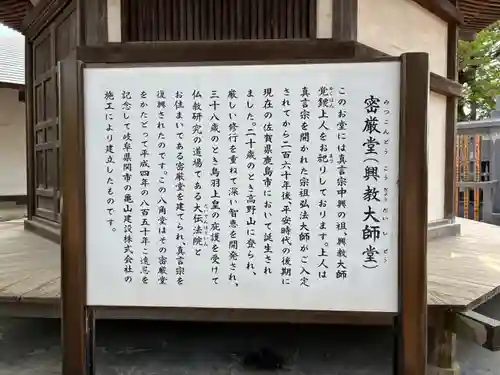 密厳堂(興教大師堂)
みつごんどう こうぎょうだいし どう
このお堂には真言宗中興の祖、興教大師
覚鑁上人をお祀りしております。上人は
かくばん
真言宗を開かれた宗祖弘法大師がご入定
されてから二百六十年後、平安時代の後期に
現在の佐賀県鹿島市において誕生され
ました。二十歳のとき高野山に登られ、
厳しい修行を重ねて深い智恵を開発され、
三十八歳のとき鳥羽上皇の庇護を受けて
仏教研究の道場である大伝法院と
だいでんぼういん
お住まいである密厳堂を建てられ、真言宗を
復興されたのです。この八角堂はその密厳堂
をかたどって平成四年の八百五十年ご遠忌を
記念して岐阜県関市の亀山建設株式会社の
施工により建立したものです。